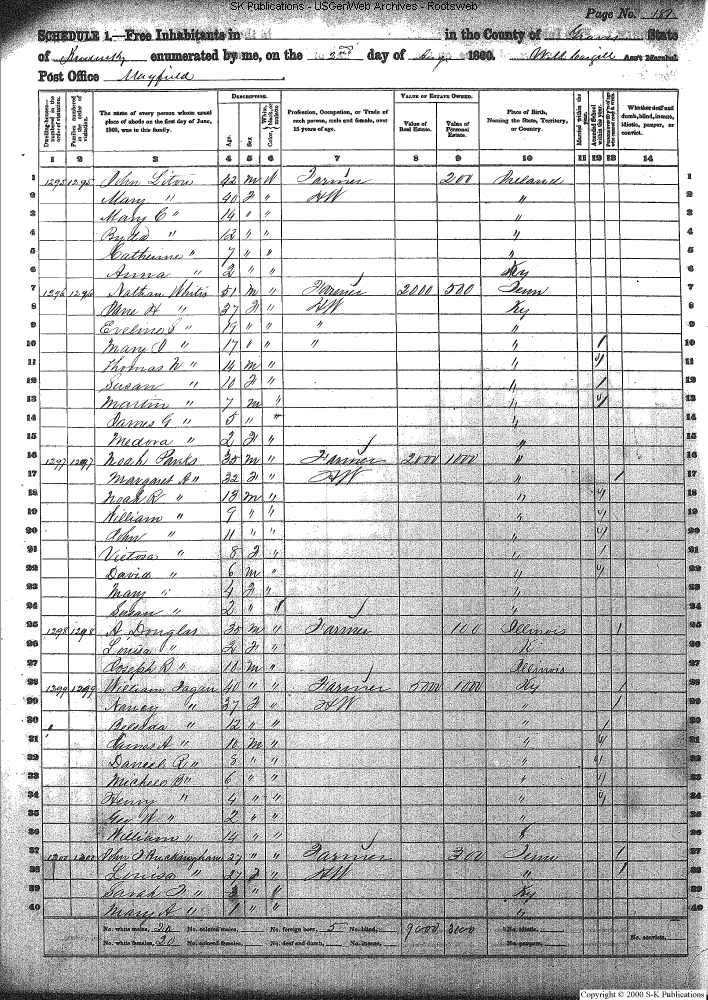 SK Publications - USGenWeb Archives - Rootsweb
Page No. 157
SCHEDULE 1.—Free Inhabitants in in the County of Graves State
of Kentucky enumerated by me, on the 2nd day of 1860. Ass't Marshal.
Post Office Mayfield
Dwelling-houses—numbered in the order of visitation.
Families numbered in the order of visitation.
The name of every person whose usual place of abode on the first day of June, 1860, was in this family.
DESCRIPTION.
Age.
Sex.
Color, White, black, or mulatto.
Profession, Occupation, or Trade of each person, male and female, over 15 years of age.
VALUE OF ESTATE OWNED.
Value of Real Estate.
Value of Personal Estate.
Place of Birth, Naming the State, Territory, or Country.
Married within the year.
Attended School within the year.
Whether deaf and dumb, blind, insane, idiotic, pauper, or convict.
1 2 3 4 5 6 7 8 9 10 11 12 13 14
1 1295 1295 John 42 M W Farmer 200 Ireland 1
2 Mary " 40 F " HW " 2
3 Mary C " 14 " " " 3
4 " 12 " " " 4
5 Catherine " 7 " " " 5
6 Anna " 2 " " Ky 6
7 1296 1296 Nathan Whitis 51 M " Farmer 2000 500 Tenn 7
8 Jane H " 37 F " HW Ky 8
9 " 19 " " " " 9
10 Mary " 17 " " " " 1 10
11 Thomas N " 14 M " " " 11
12 Susan " 10 F " " 1 12
13 Martin " 7 M " " " 13
14 James G " 5 " " " 14
15 Medora " 2 F " " 15
16 1297 1297 Noah Parks 35 M " Farmer 2000 1000 " 16
17 Margaret A " 32 F " HW " / 17
18 Noah R " 13 M " " " 18
19 William " 9 " " " " 19
20 John " 11 " " " " 20
21 " 8 F " " 1 21
22 David " 6 M " " " 22
23 Mary " 4 F " " 23
24 Susan " 2 " " " 24
25 1298 1298 A Douglas 35 M " Farmer 100 Illinois / 25
26 Louisa " F " K 26
27 Joseph R " 10 M " Illinois 27
28 1299 1299 William Fagan 40 " " Farmer 5000 1000 Ky / 28
29 Nancy " 37 F " HW " / 29
30 " 12 " " " 1 30
31 James A " 10 M " " " 31
32 Daniel R " 8 " " " " 32
33 B " 6 " " " " 33
34 Henry " 4 " " " " 34
35 Geo W " 2 " " " 35
36 William " 14 " " " 36
37 1300 1300 John Buckingham 27 " " Farmer 300 Tenn / 37
38 Louisa " 27 F " HW " / 38
39 Sarah F " " " Ky 39
40 Mary A " 1 " " " 40
No. white males, 20 No. colored males, No. foreign born, 5 No. blind, 9000 No. idiotic, No. convicts,
No. white females, 20 No. colored females, No. deaf and dumb, No. insane, No. paupers,
Copyright © 2000 S-K Publications